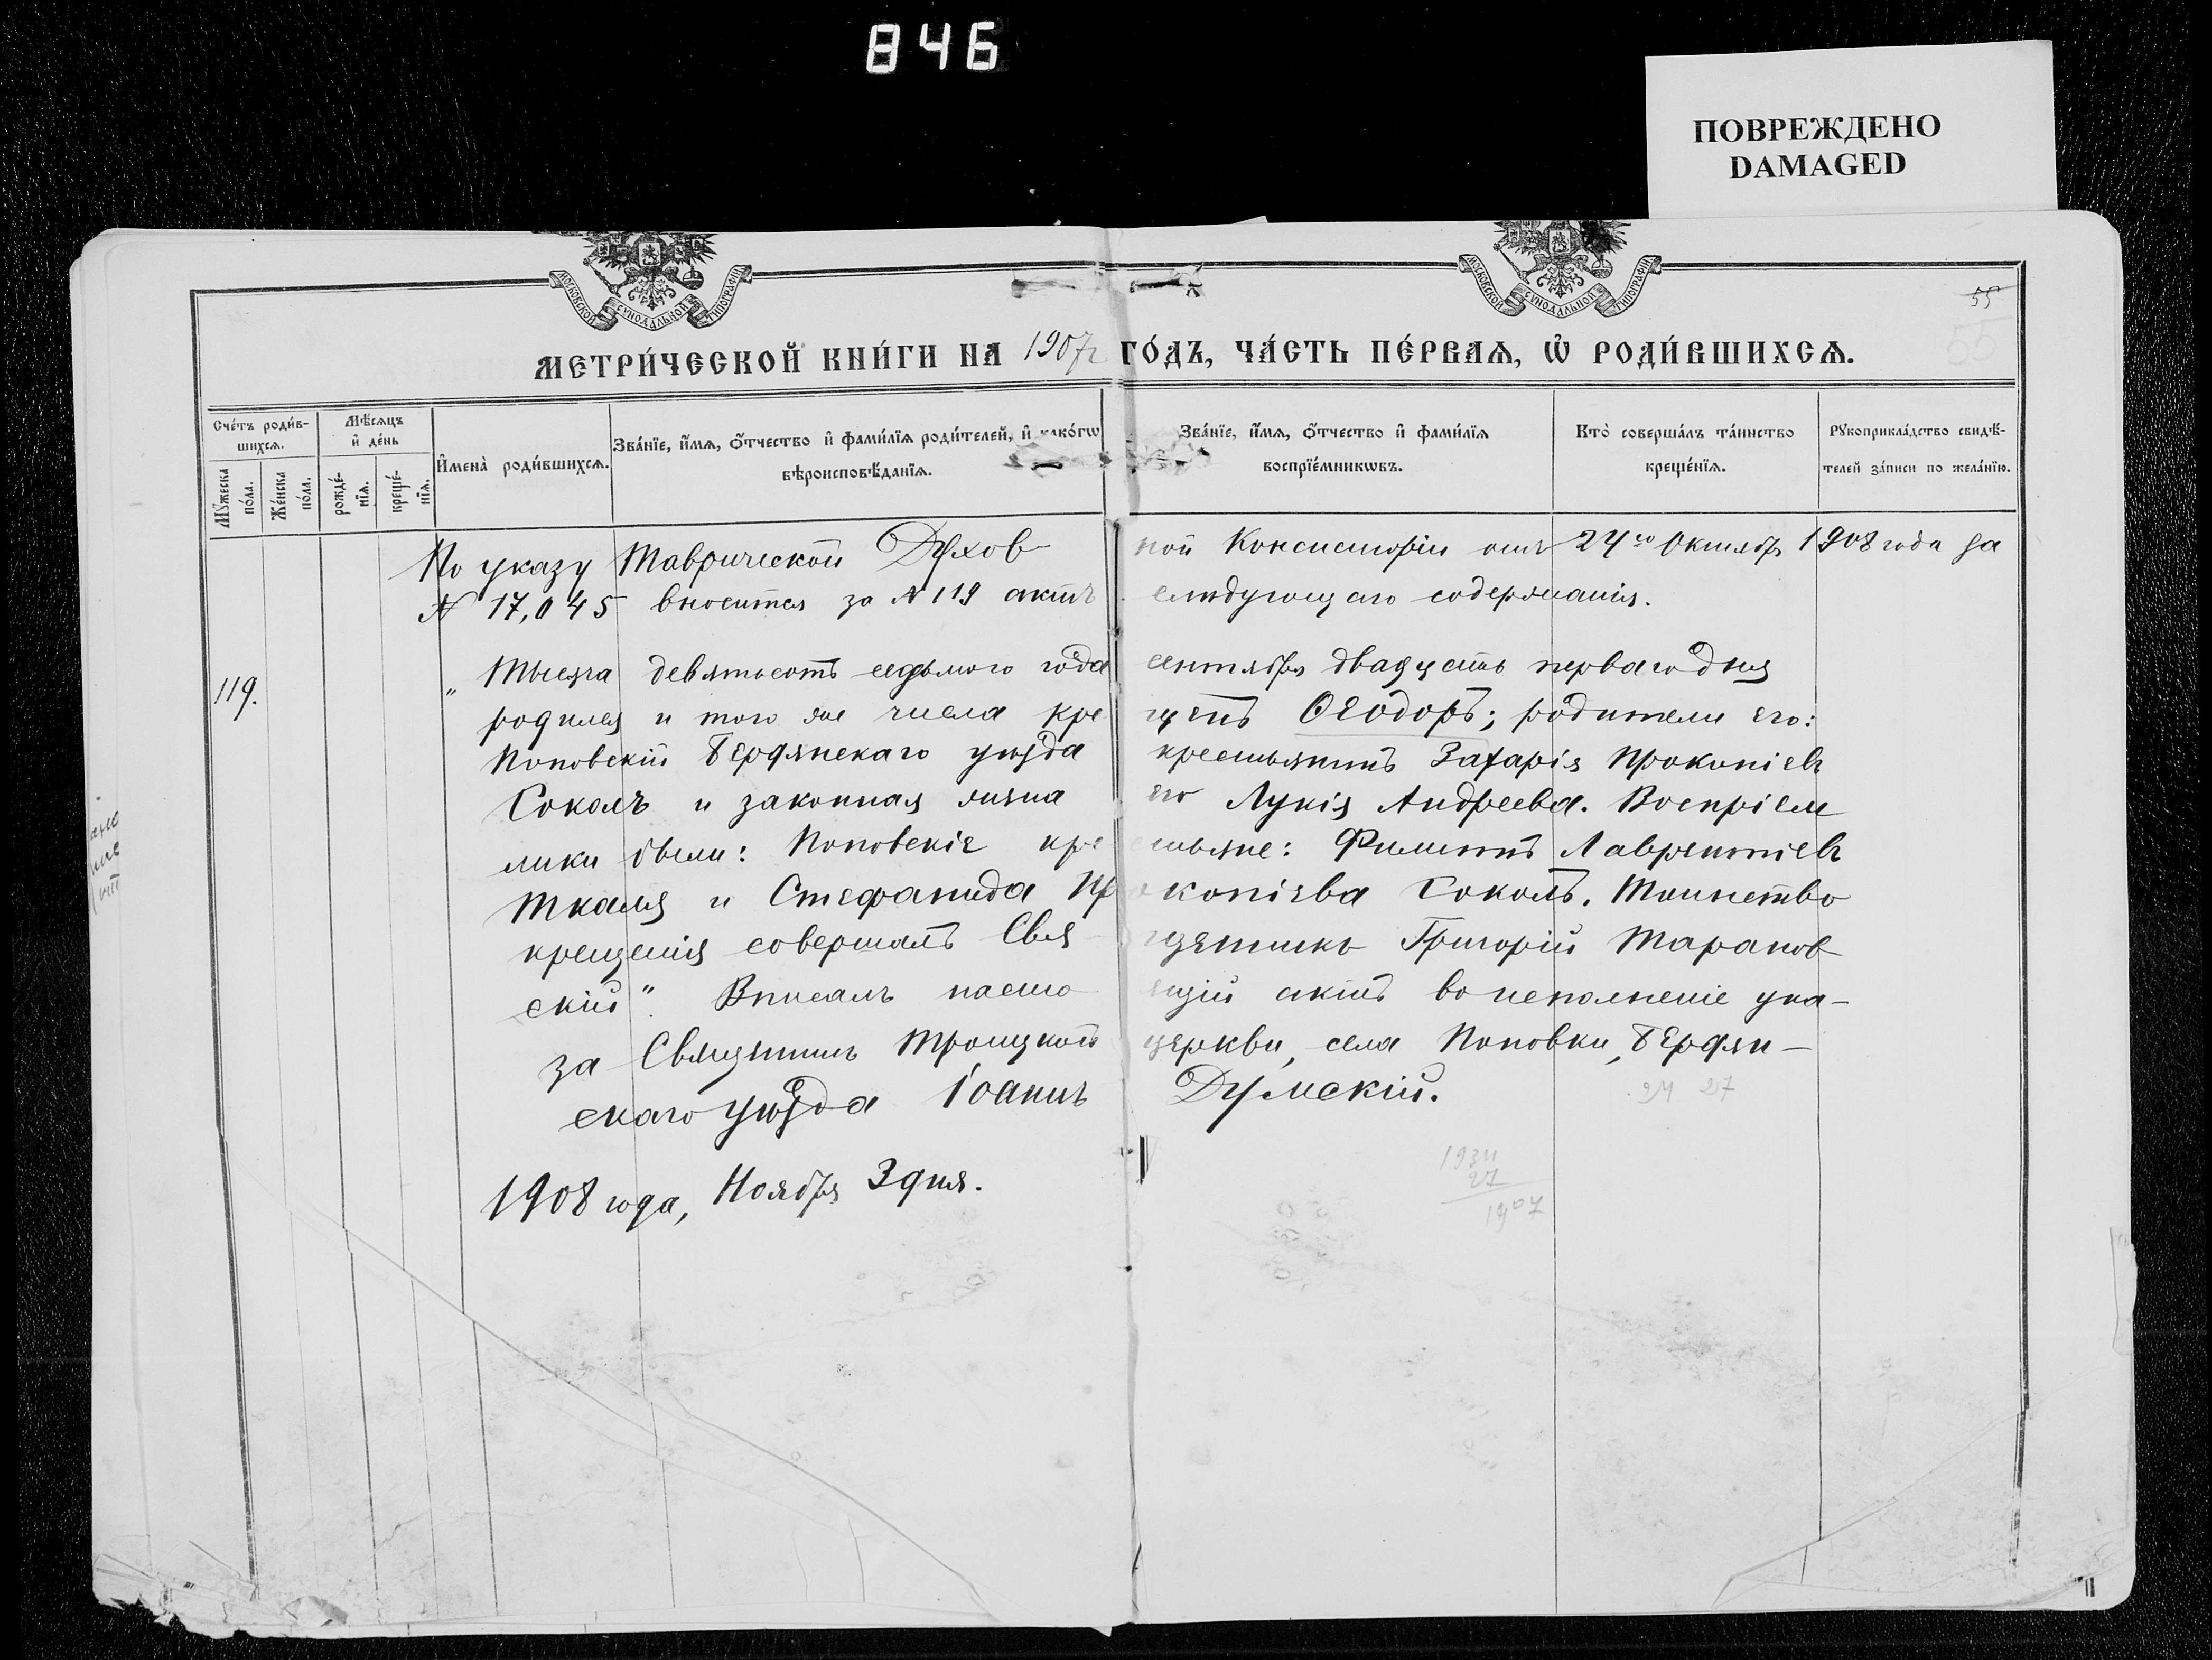 846
ПОВРЕЖДЕНО
DAMAGED
МОСКОВСКОЙ СѴНОДАЛЬНОЙ ТИПОГРАФІИ
МОСКОВСКОЙ СѴНОДАЛЬНОЙ ТИПОГРАФІИ
55
МЕТРИ́ЧЕСКОЙ КНИ́ГИ НА 1907 г ГО́ДЪ, ЧА́СТЬ ПЕ́РВАѦ, Ѽ РОДИ́ВШИХСѦ.
Сче́тъ роди́в-
шихсѧ.
Мѣ́сѧцъ
и҆ де́нь
Мꙋ́жеска
по́ла.
Же́нска
по́ла.
рожде́-
нїѧ.
креще́-
нїѧ.
И҆мена̀ роди́вшихсѧ.
Зва́нїе, и҆́мѧ, ѻ҆́тчество и҆ фами́лїѧ роди́телей, и҆ како́гѡ
вѣроисповѣ́данїѧ.
Зва́нїе, и҆́мѧ, ѻ҆́тчество и҆ фами́лїѧ
воспрїе́мникѡвъ.
Кто̀ соверша́лъ та́инство
креще́нїѧ.
Рꙋкоприкла́дство свидѣ́-
телей за́писи по жела́нїю.
По указу Таврической Духов ной Консисторіи отъ 24го Октября 1908 года за
№ 17,045 вносится за № 119 актъ слѣдующаго содержанія.
119.
„Тысяча девятьсотъ седьмого года сентября двадцать перваго дня
родился и того же числа кре щенъ Ѳеодоръ; родители его:
Поповскій Бердянскаго уѣзда крестьянинъ Захарія Прокопіевъ
Соколъ и законная жена его Лукія Андреева. Воспріем
ники были: Поповскіе кре стьяне: Филиппъ Лаврентіевъ
Ткаля и Стефанида Пр окопіева Соколъ. Таинство
крещенія совершалъ Свя щенникъ Григорій Таранов
скій“. Вписалъ насто ящій актъ во исполненіе ука-
за Священникъ Троицкой церкви, села Поповки, Бердян-
скаго уѣзда Іоаннъ Думскій.
24 27
1934
27
1907
1908 года, Ноября 3 дня.